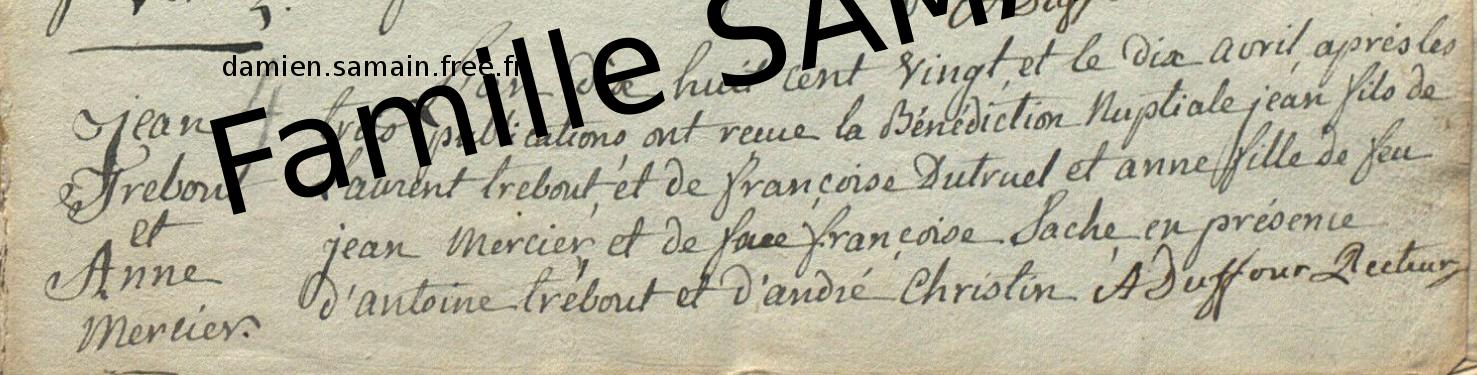 damien.samain.free.fr
Famille SAMA
Jean
Trebout
et
Anne
Mercier.
L'an dix huit cent Vingt, et le dix avril, après les
trois publications, ont reçue la Bénédiction Nuptiale jean fils de
Laurent trebout, et de françoise Dutruel et anne fille de feu
jean Mercier, et de feue françoise Saché en présence
d'antoine trébout et d'andré Christin ADuffour Recteur